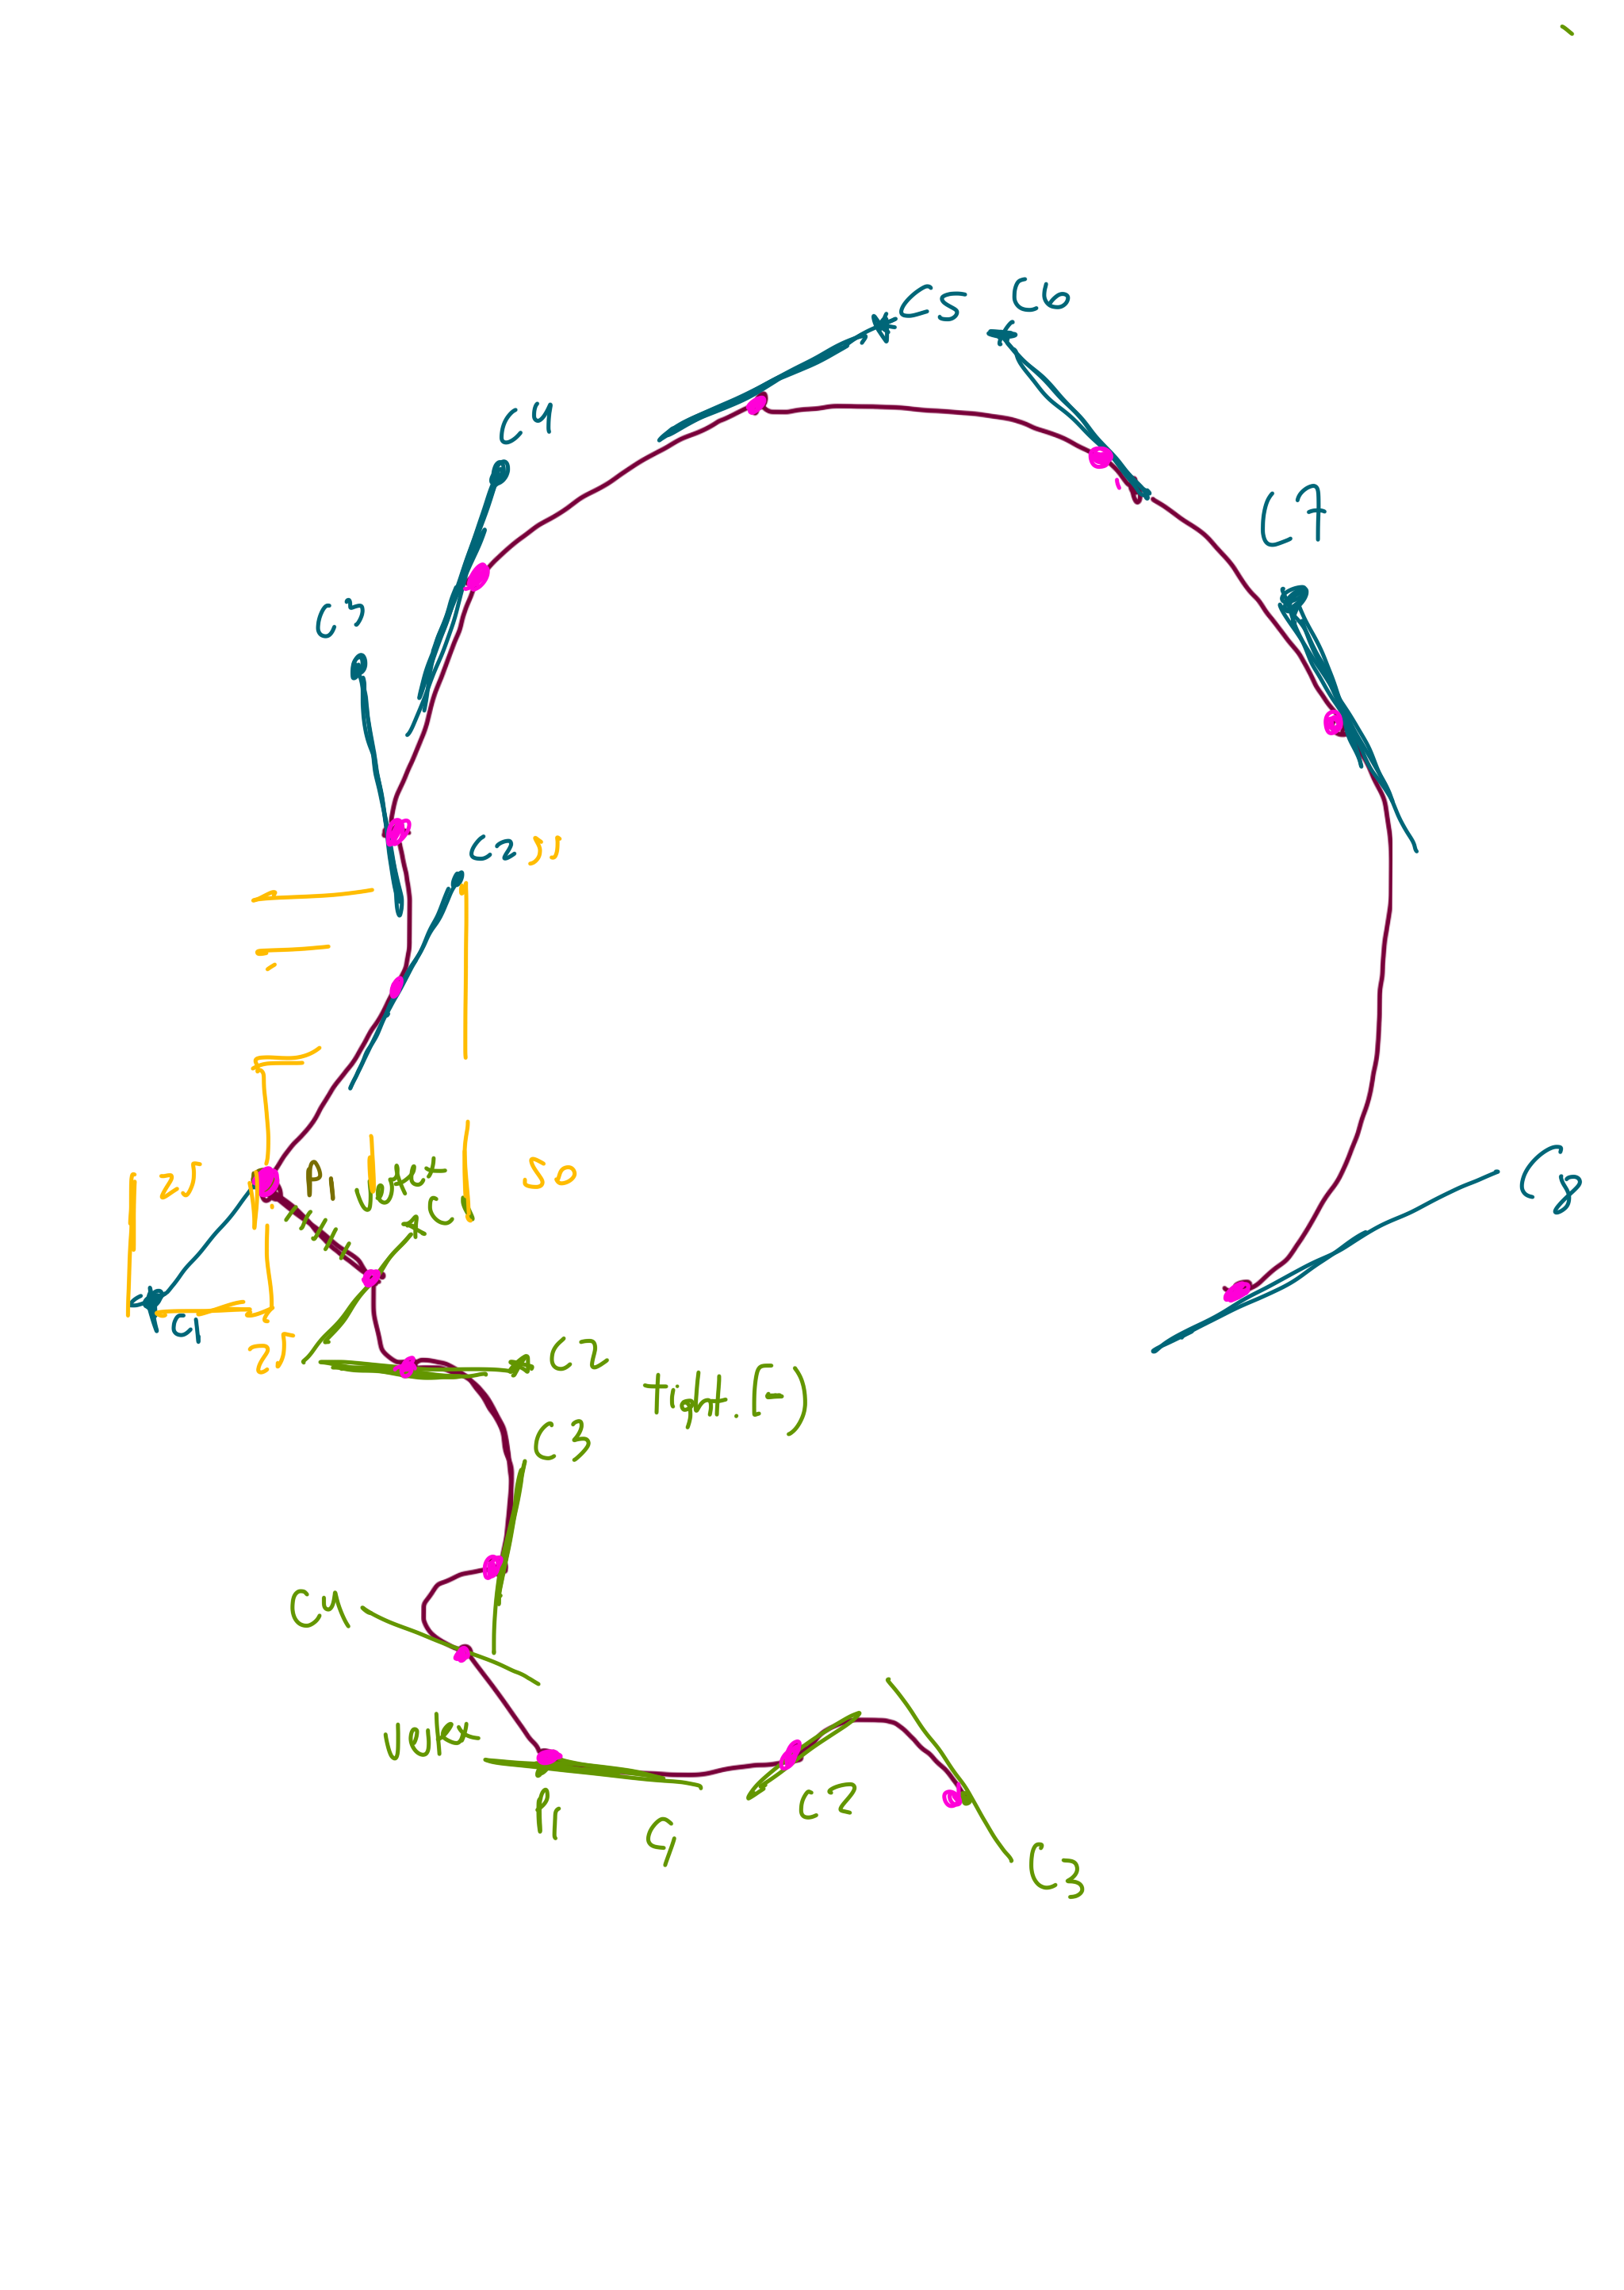 C5 C6
C4
C7
C3
C2 55
25 P1 Vert 50
C1
C1
25
C2
tight. (-)
C3
C4
Vert
P1
C1
C2
C3
C8